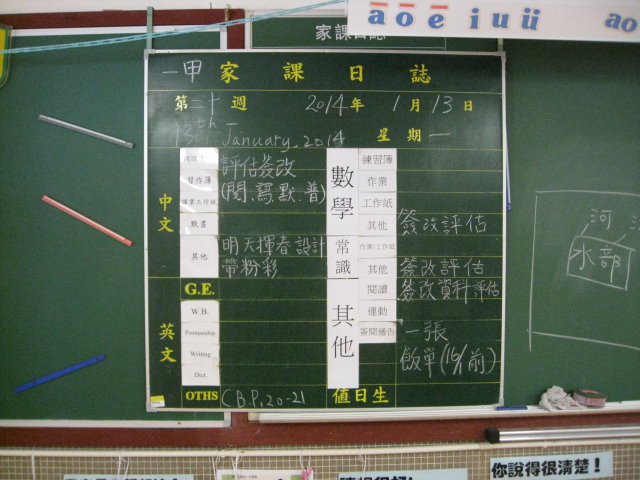 ā ō ē i u ü ao
家課日誌
一甲 家課日誌
第二十週 2014年 1月13日
12th January, 2014 星期一
中文
習作簿
課業工作紙
默書
其他
評估簽改
(閱.寫.默.普)
明天揮春設計
帶粉彩
英文
G.E.
W.B.
Penmanship
Writing
Dict.
OTHS C B.P.20-21
數學
練習簿
作業
工作紙
其他 簽改評估
常識
作業/工作紙
其他 簽改評估
其他
閱讀 簽改資料評估
運動
簽閱通告 一張
飯單(16/1前)
值日生
河
水部
你說得很清楚！